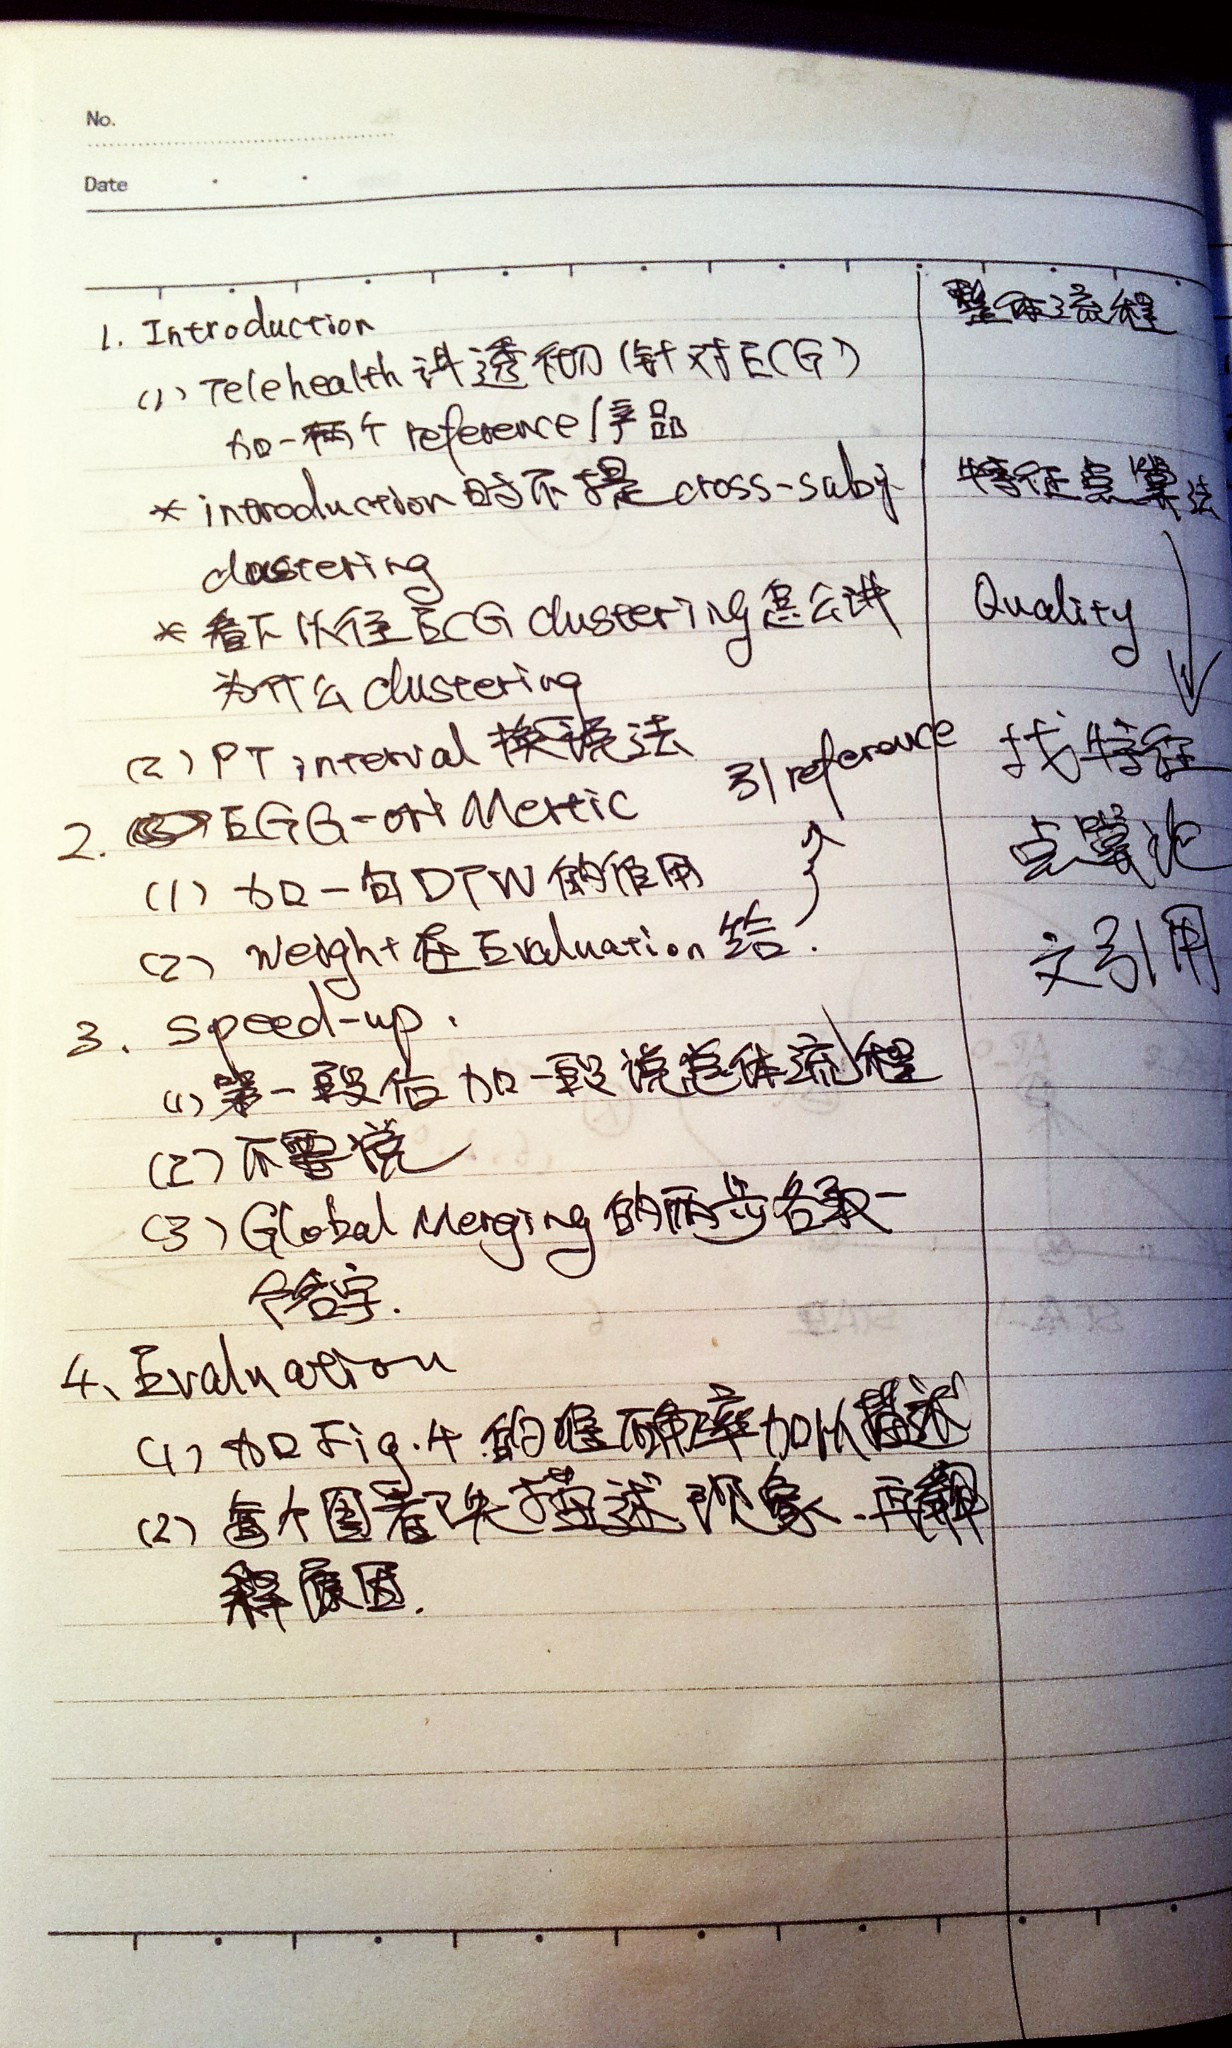 No.
Date
1. Introduction
(1) Telehealth 讲透彻 (针对ECG)
加一两个 reference/产品
* introduction 时不提 cross-subj
clustering
* 看下以往 ECG clustering 怎么讲
为什么 clustering
(2) PT interval 换说法
2. EGG-ori Mertic
(1) 加一句DTW的作用
(2) Weight 在 Evaluation 给.
引 reference
3. Speed-up.
(1) 第一段后加一段说总体流程
(2) 不要说
(3) Global Merging 的两步各取一
个名字.
4. Evaluation
(1) 加 Fig.4 的准确率加以描述
(2) 每个图着都先描述现象.再解
释原因.
整体流程
特征点算法
Quality
找特征
点算法
文引用